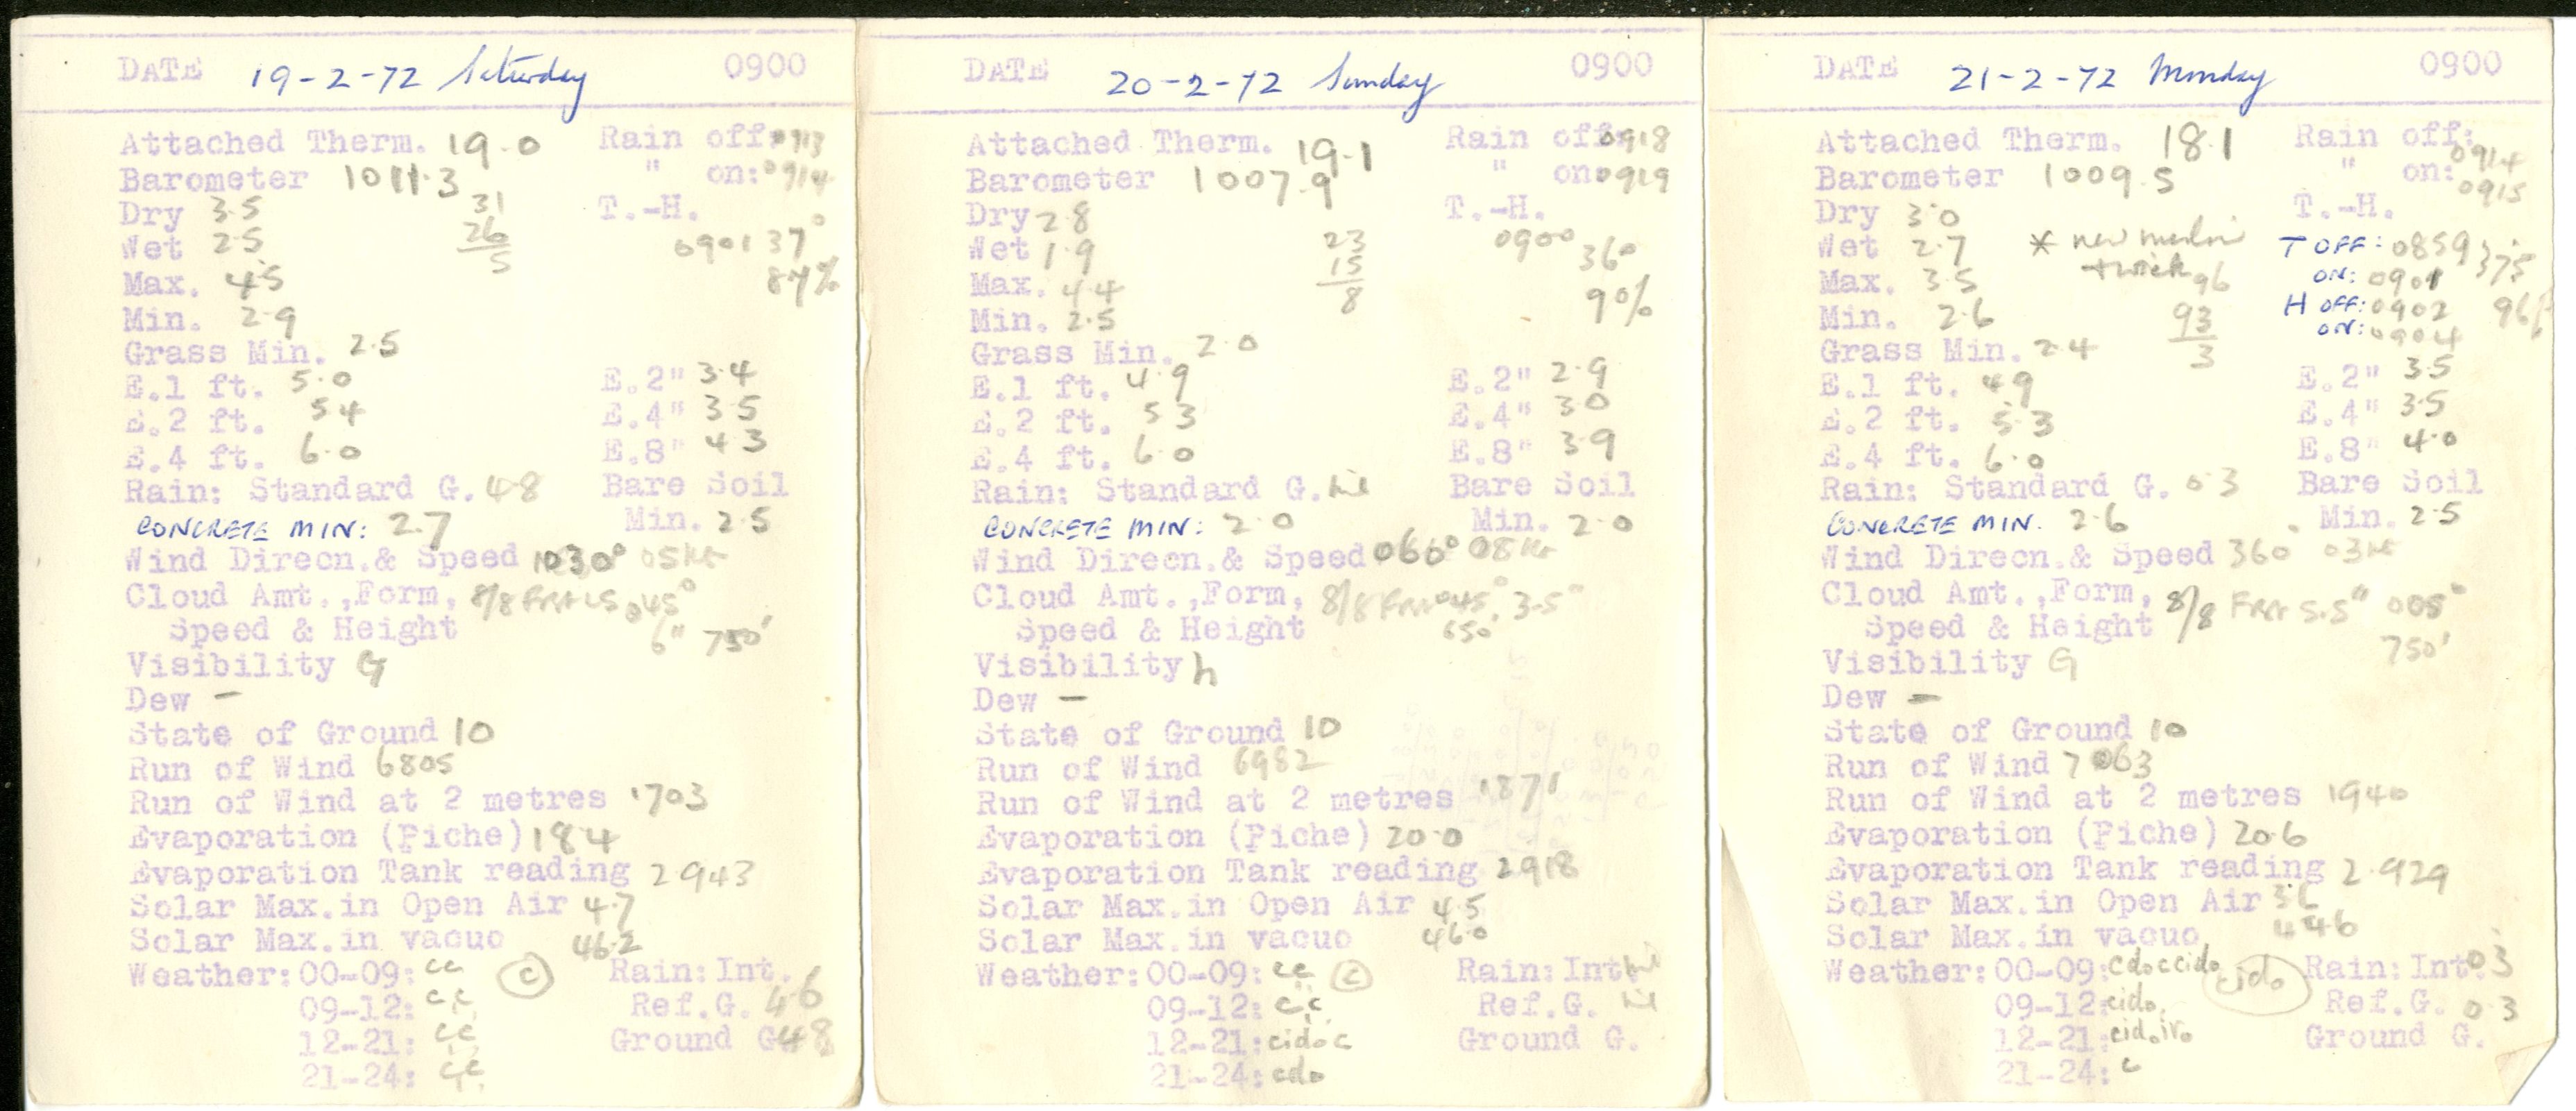 DATE 19-2-72 Saturday 0900
Attached Therm. 19.0 Rain off: 0913
Barometer 1011.3 " on: 0914
Dry 3.5 31 T.-H.
Wet 2.5 26 0901 37°
5 87%
Max. 4.5
Min. 2.9
Grass Min. 2.5
E.1 ft. 5.0 E.2" 3.4
E.2 ft. 5.4 E.4" 3.5
E.4 ft. 6.0 E.8" 4.3
Rain: Standard G. 4.8 Bare Soil
CONCRETE MIN: 2.7 Min. 2.5
Wind Direcn.& Speed 030° 05 Kt
Cloud Amt.,Form, 8/8 045°
Speed & Height 6" 750'
Visibility G
Dew -
State of Ground 10
Run of Wind 6805
Run of Wind at 2 metres 1703
Evaporation (Piche) 18.4
Evaporation Tank reading 2.943
Solar Max.in Open Air 4.7
Solar Max.in vacuo 46.2
Weather: 00-09: cc (c) Rain: Int.
09-12: cc Ref.G. 4.6
12-21: cc Ground G. 4.8
21-24: cc
DATE 20-2-72 Sunday 0900
Attached Therm. 19.1 Rain off: 0918
Barometer 1007.9 " on: 0919
Dry 2.8 T.-H.
Wet 1.9 23 0900 36°
15
Max. 4.4 8 90%
Min. 2.5
Grass Min. 2.0
E.1 ft. 4.9 E.2" 2.9
E.2 ft. 5.3 E.4" 3.0
E.4 ft. 6.0 E.8" 3.9
Rain: Standard G. nil Bare Soil
CONCRETE MIN: 2.0 Min. 2.0
Wind Direcn.& Speed 060° 08 Kt
Cloud Amt.,Form, 8/8 045° 3.5"
Speed & Height 650'
Visibility h
Dew -
State of Ground 10
Run of Wind 6982
Run of Wind at 2 metres 1871
Evaporation (Piche) 20.0
Evaporation Tank reading 2.918
Solar Max.in Open Air 4.5
Solar Max.in vacuo 46.0
Weather: 00-09: cc (c) Rain: Int. nil
09-12: cc Ref.G. nil
12-21: cidoc Ground G.
21-24: cdo
DATE 21-2-72 Monday 0900
Attached Therm. 18.1 Rain off: 0914
Barometer 1009.5 " on: 0915
Dry 3.0 T.-H.
Wet 2.7 * new muslin T OFF: 0859 37.5
+ wick ON: 0901
Max. 3.5 96 H OFF: 0902 96%
Min. 2.6 93 ON: 0904
Grass Min. 2.4 3
E.1 ft. 4.9 E.2" 3.5
E.2 ft. 5.3 E.4" 3.5
E.4 ft. 6.0 E.8" 4.0
Rain: Standard G. 0.3 Bare Soil
CONCRETE MIN. 2.6 Min. 2.5
Wind Direcn.& Speed 360° 03 Kt
Cloud Amt.,Form, 8/8 5.5" 005°
Speed & Height 750'
Visibility G
Dew -
State of Ground 10
Run of Wind 7063
Run of Wind at 2 metres 1940
Evaporation (Piche) 20.6
Evaporation Tank reading 2.929
Solar Max.in Open Air 3.6
Solar Max.in vacuo 44.6
Weather: 00-09: cdoccido (cido) Rain: Int. 0.3
09-12: cido Ref.G. 0.3
12-21: cidoiro Ground G.
21-24: c